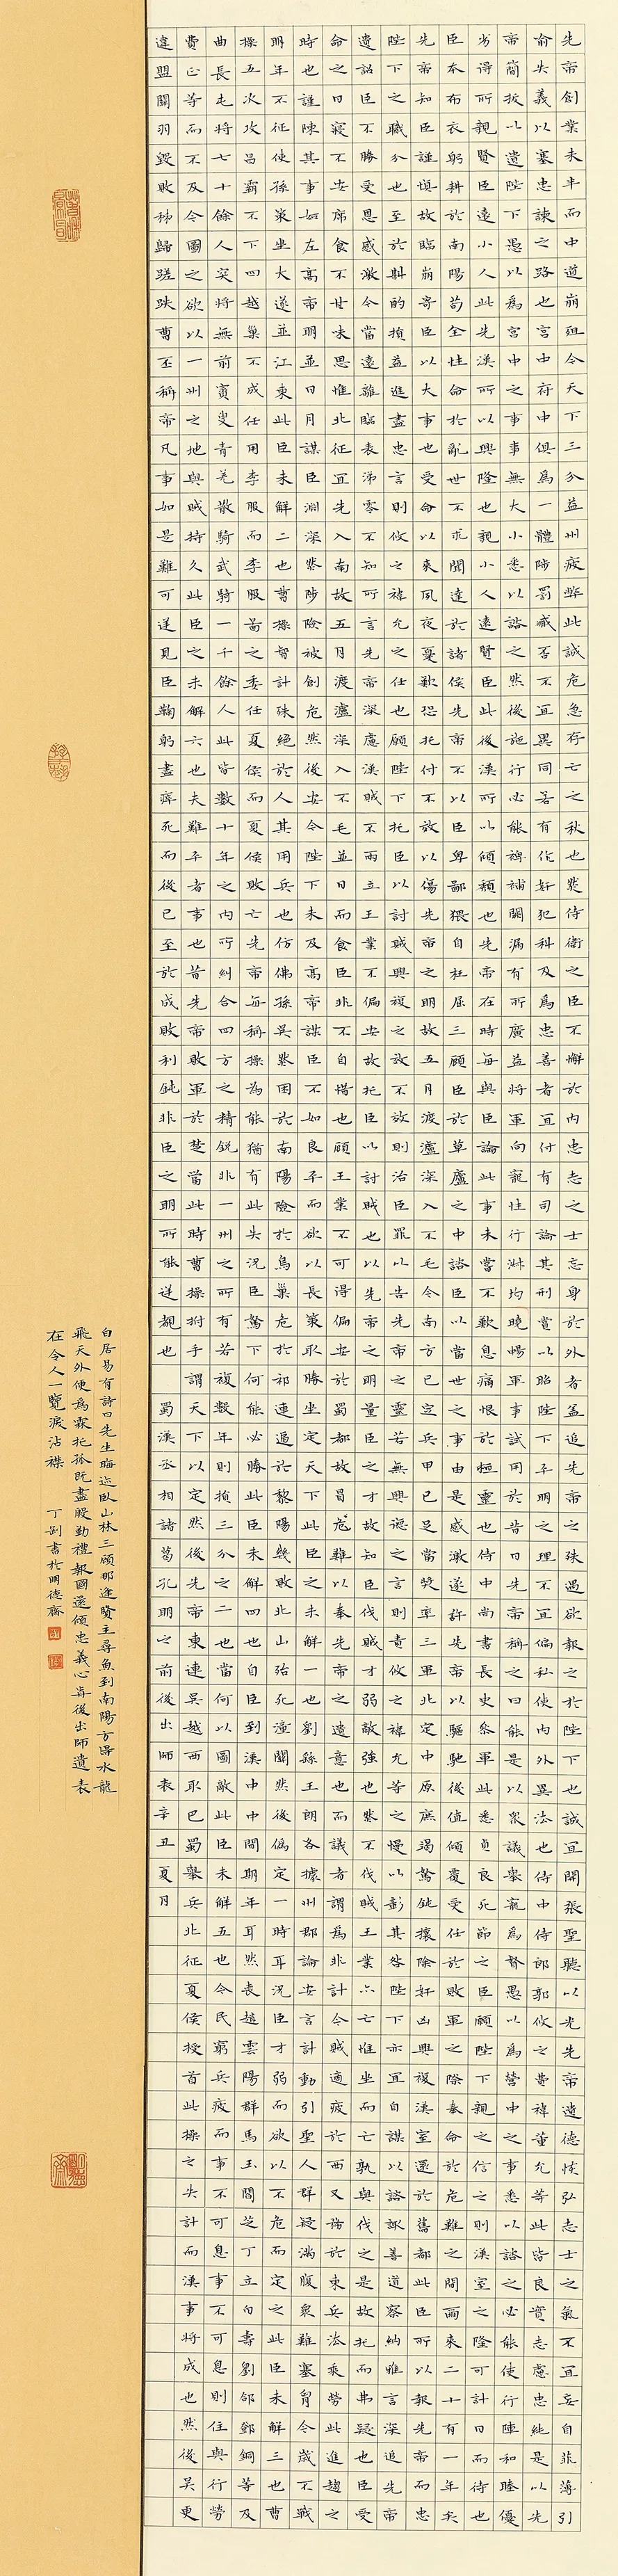 先帝創業未半而中道崩殂今天下三分益州疲弊此誠危急存亡之秋也然侍衛之臣不懈於內忠志之士忘身於外者蓋追先帝之殊遇欲報之於陛下也誠宜開張聖聽以光先帝遺德恢弘志士之氣不宜妄自菲薄引
喻失義以塞忠諫之路也宮中府中俱為一體陟罰臧否不宜異同若有作奸犯科及為忠善者宜付有司論其刑賞以昭陛下平明之理不宜偏私使內外異法也侍中侍郎郭攸之費禕董允等此皆良實志慮忠純是以先
帝簡拔以遺陛下愚以為宮中之事事無大小悉以諮之然後施行必能裨補闕漏有所廣益將軍向寵性行淑均曉暢軍事試用於昔日先帝稱之曰能是以眾議舉寵為督愚以為營中之事悉以諮之必能使行陣和睦優
劣得所親賢臣遠小人此先漢所以興隆也親小人遠賢臣此後漢所以傾頹也先帝在時每與臣論此事未嘗不歎息痛恨於桓靈也侍中尚書長史參軍此悉貞良死節之臣願陛下親之信之則漢室之隆可計日而待也
臣本布衣躬耕於南陽苟全性命於亂世不求聞達於諸侯先帝不以臣卑鄙猥自枉屈三顧臣於草廬之中諮臣以當世之事由是感激遂許先帝以驅馳後值傾覆受任於敗軍之際奉命於危難之間爾來二十有一年矣
先帝知臣謹慎故臨崩寄臣以大事也受命以來夙夜憂歎恐托付不效以傷先帝之明故五月渡瀘深入不毛今南方已定兵甲已足當獎率三軍北定中原庶竭駑鈍攘除奸凶興複漢室還於舊都此臣所以報先帝而忠
陛下之職分也至於斟酌損益進盡忠言則攸之禕允之任也願陛下托臣以討賊興複之效不效則治臣罪以告先帝之靈若無興德之言則責攸之禕允等之慢以彰其咎陛下亦宜自謀以諮諏善道察納雅言深追先帝
遺詔臣不勝受恩感激今當遠離臨表涕零不知所言先帝深慮漢賊不兩立王業不偏安故托臣以討賊也以先帝之明量臣之才故知臣伐賊才弱敵強也然不伐賊王業亦亡惟坐而亡孰與伐之是故托而弗疑也臣受
命之日寢不安席食不甘味思惟北征宜先入南故五月渡瀘深入不毛並日而食臣非不自惜也顧王業不可得偏安於蜀都故冒危難以奉先帝之遺意也而議者謂為非計今賊適疲於西又務於東兵法乘勞此進趨之
時也謹陳其事如左高帝明並日月謀臣淵深然涉險被創危然後安今陛下未及高帝謀臣不如良平而欲以長策取勝坐定天下此臣之未解一也劉繇王朗各據州郡論安言計動引聖人群疑滿腹眾難塞胸今歲不戰
明年不征使孫策坐大遂並江東此臣未解二也曹操智計殊絕於人其用兵也仿佛孫吳然困於南陽險於烏巢危於祁連逼於黎陽幾敗北山殆死潼關然後偽定一時耳況臣才弱而欲以不危而定之此臣未解三也曹
操五次攻昌霸不下四越巢不成任用李服而李服圖之委任夏侯而夏侯敗亡先帝每稱操為能猶有此失況臣駑下何能必勝此臣未解四也自臣到漢中中間期年耳然喪趙雲陽群馬玉閻芝丁立白壽劉郃鄧銅等及
曲長屯將七十餘人突將無前賨叟青羌散騎武騎一千餘人此皆數十年之內所糾合四方之精銳非一州之所有若複數年則損三分之二也當何以圖敵此臣未解五也今民窮兵疲而事不可息事不可息則住與行勞
費正等而不及今圖之欲以一州之地與賊持久此臣之未解六也夫難平者事也昔先帝敗軍於楚當此時曹操拊手謂天下以定然後先帝東連吳越西取巴蜀舉兵北征夏侯授首此操之失計而漢事將成也然後吳更
違盟關羽毀敗秭歸蹉跌曹丕稱帝凡事如是難可逆見臣鞠躬盡瘁死而後已至於成敗利鈍非臣之明所能逆覩也 蜀漢丞相諸葛孔明之前後出師表辛丑夏月
白居易有詩曰先生晦迹臥山林三顧那逢賢主尋魚到南陽方得水龍
飛天外便為霖托孤既盡殷勤禮報國還傾忠義心前後出師遺表
在令人一覽淚沾襟 丁剑書於明德齋